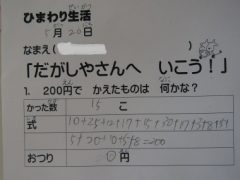 ひまわり生活
5月20日
なまえ(
「だがしやさんへ いこう！」
1. 200円で かえたものは 何かな？
かった数 15 こ
式 10+25+12+17+15+30+17+3+8+5+
5+20+10+5+8=200
おつり 0円